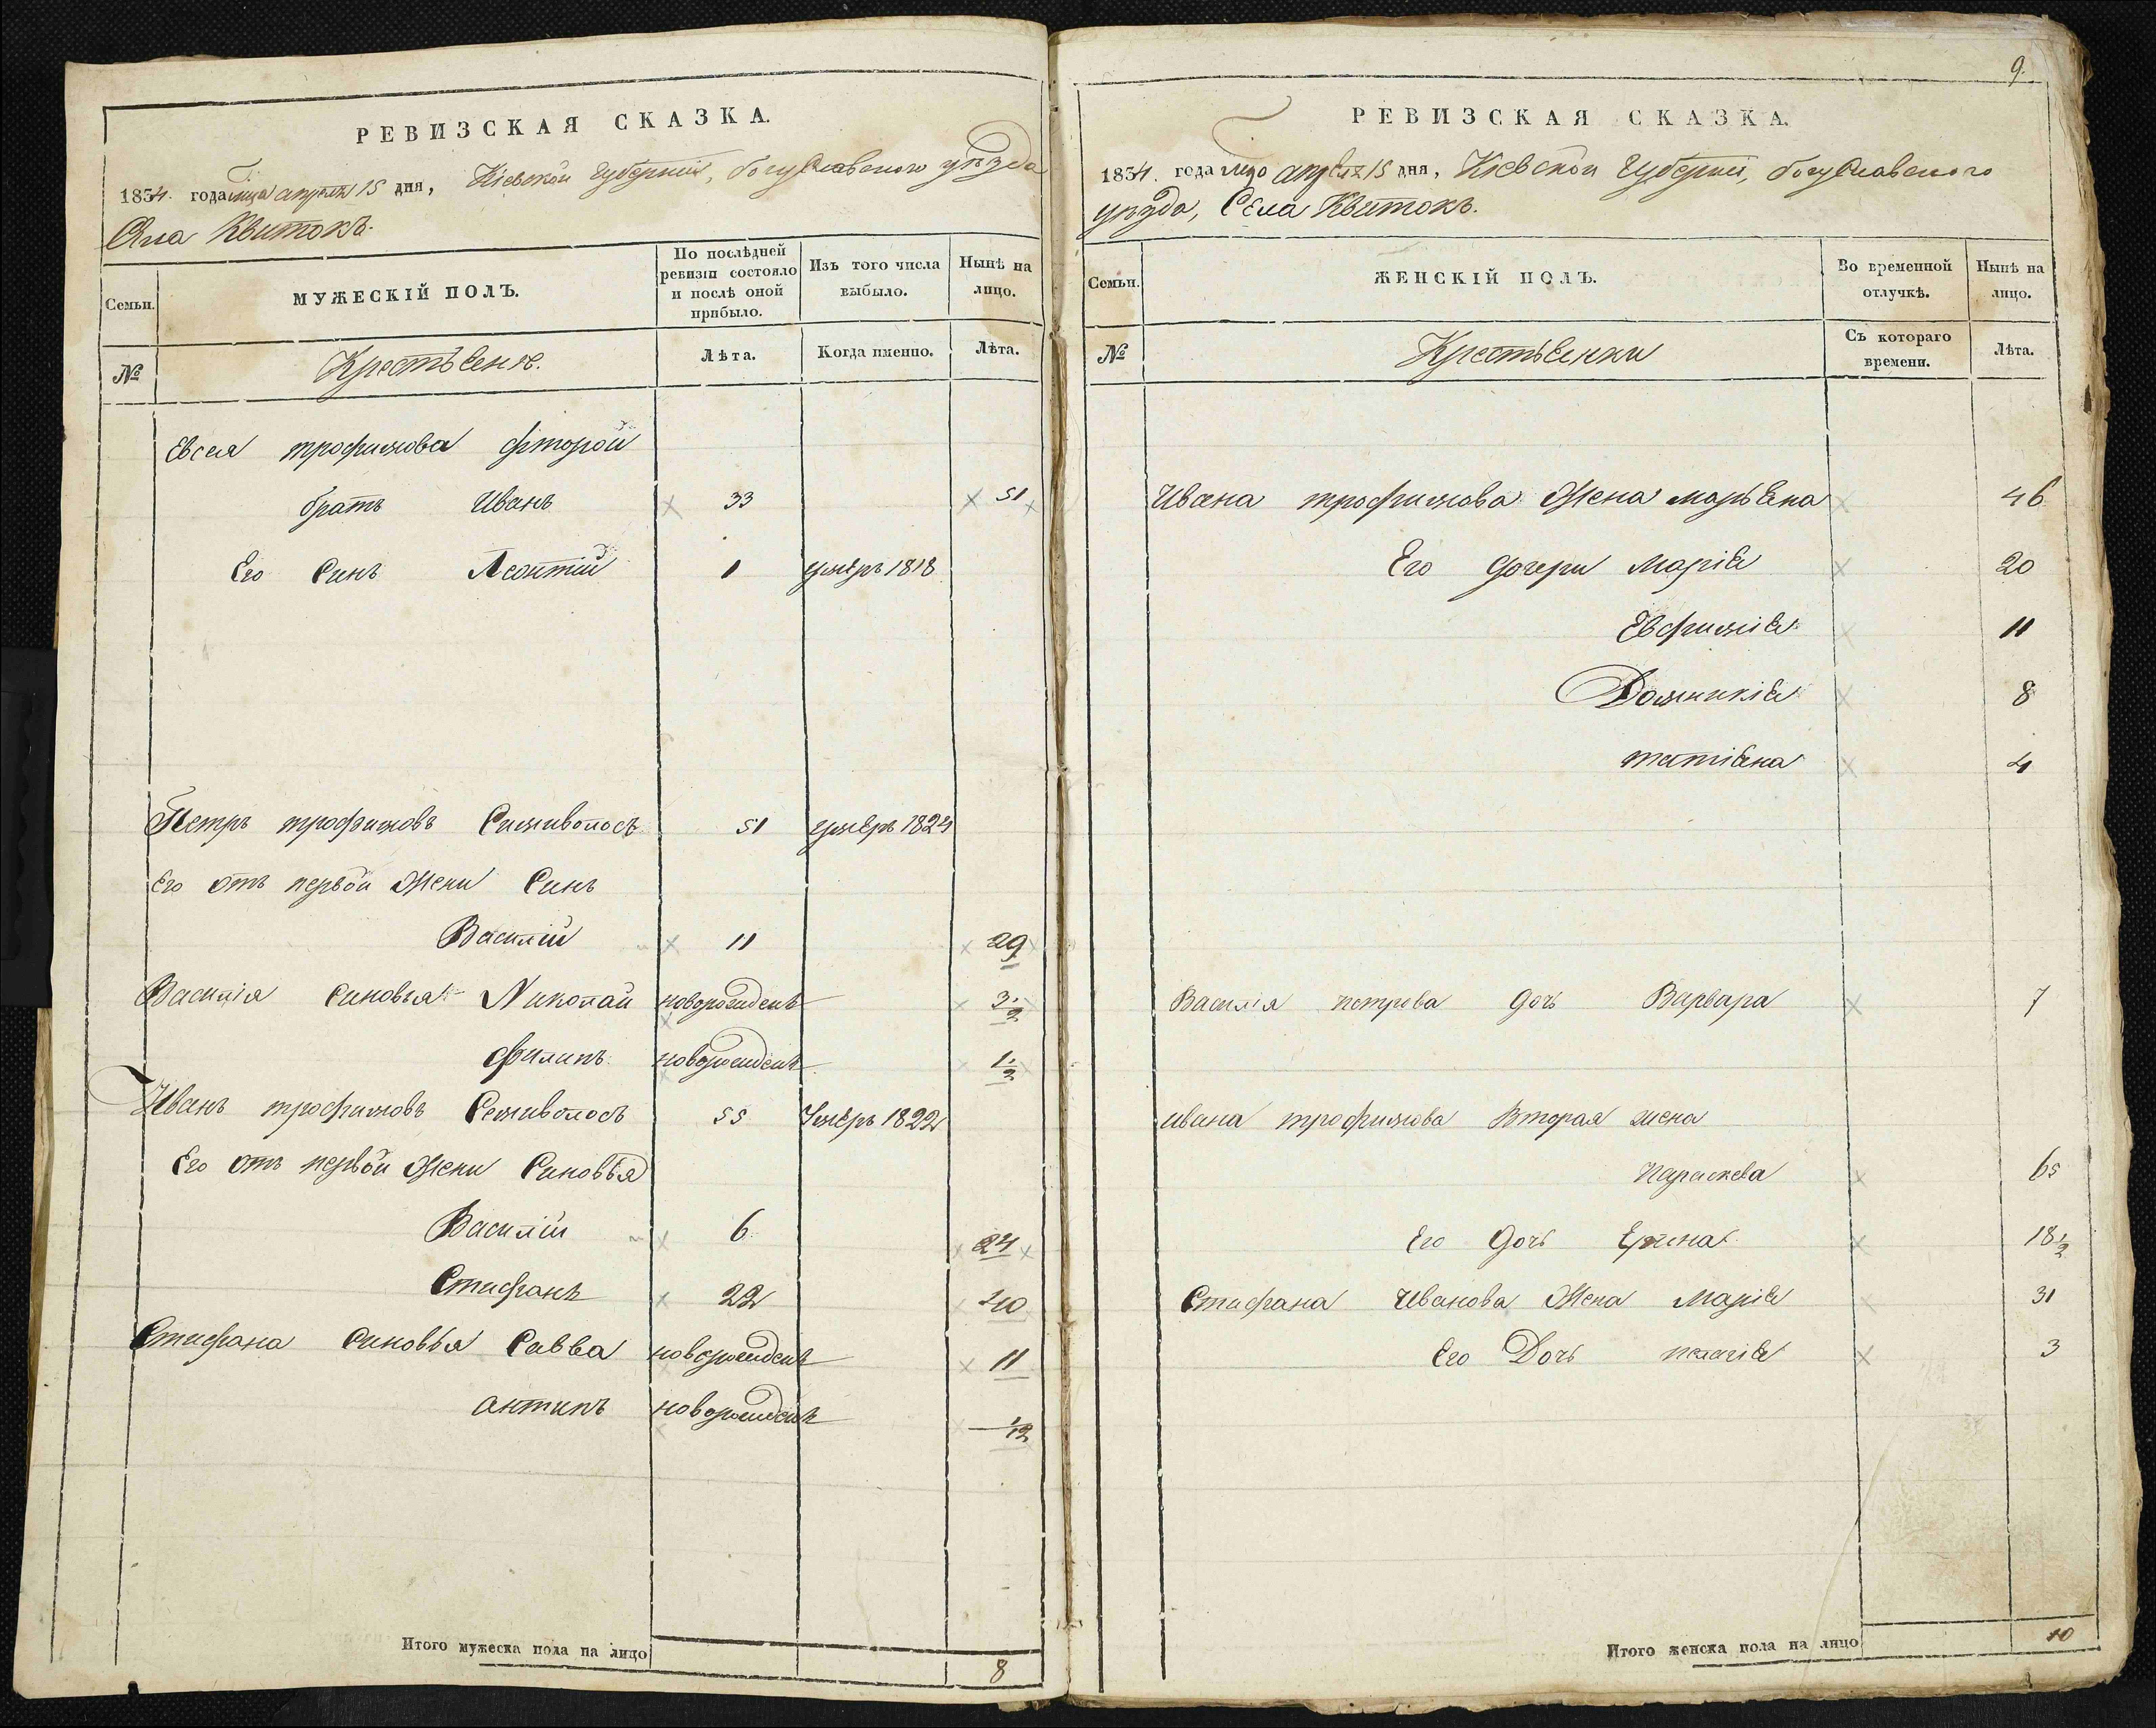 РЕВИЗСКАЯ СКАЗКА.
1834. года мца апреля 15 дня, Кіевской Губерніи, богуславского уезда
Села Квитокъ.
Семьи.
МУЖЕСКІЙ ПОЛЪ.
По послѣдней ревизіи состояло и послѣ оной прибыло.
Изъ того числа выбыло.
Нынѣ на лицо.
№
Крестьяне.
Лѣта.
Когда именно.
Лѣта.
Евсея трофимова фторой
братъ Иванъ 33 51
Его Синъ Леонтій 1 умеръ 1818
Петръ трофимовъ Сиживолосъ 51 умеръ 1824
Его отъ первой Жени Синъ
Василій 11 29
Василія Синовья Николай новорожденъ 3 1/2
филипъ новорожденъ 1 1/2
Иванъ трофимовъ Сеживолосъ 55 Умеръ 1822
Его отъ первой Жени Синовья
Василій 6 24
Стифанъ 22 40
Стифана Синовья Савва новорожденъ 11
антипъ новорожденъ 1/2
Итого мужеска пола на лицо 8
9.
РЕВИЗСКАЯ СКАЗКА.
1834. года мца апреля 15 дня, Кіевской Губерніи, богуславского
уезда, Села Квитокъ.
Семьи.
ЖЕНСКІЙ ПОЛЪ.
Во временной отлучкѣ.
Нынѣ на лицо.
№
Крестьянки
Съ котораго времени.
Лѣта.
Ивана трофимова Жена марьяна 46
Его дочери Марія 20
Евфимія 11
Домникія 8
татіяна 4
Василія петрова дочь Варвара 7
ивана трофимова Вторая жена
параскева 65
Его дочь Ирина 18 1/2
Стифана Иванова Жена Марія 31
Его Дочь пелагія 3
Итого женска пола на лицо 10